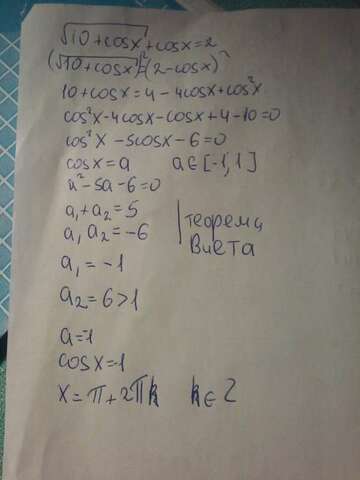 √10+cosx + cosx = 2
(√10+cosx)² = (2-cosx)²
10+cosx = 4 - 4cosx + cos²x
cos²x - 4cosx - cosx + 4 - 10 = 0
cos²x - 5cosx - 6 = 0
cosx = a a∈[-1,1]
a² - 5a - 6 = 0
a₁ + a₂ = 5
a₁ a₂ = -6
теорема
Виета
a₁ = -1
a₂ = 6 > 1
a = -1
cosx = -1
x = π + 2πk k ∈ Z